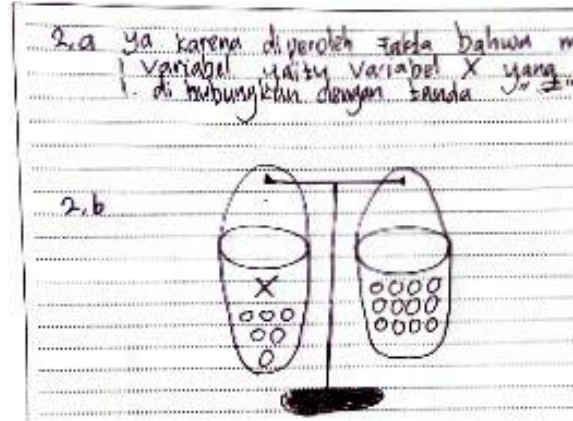 2.a ya karena diperoleh fakta bahwa m
1 variabel yaitu variabel X yang
di hubungkan dengan tanda "="
2.b
X